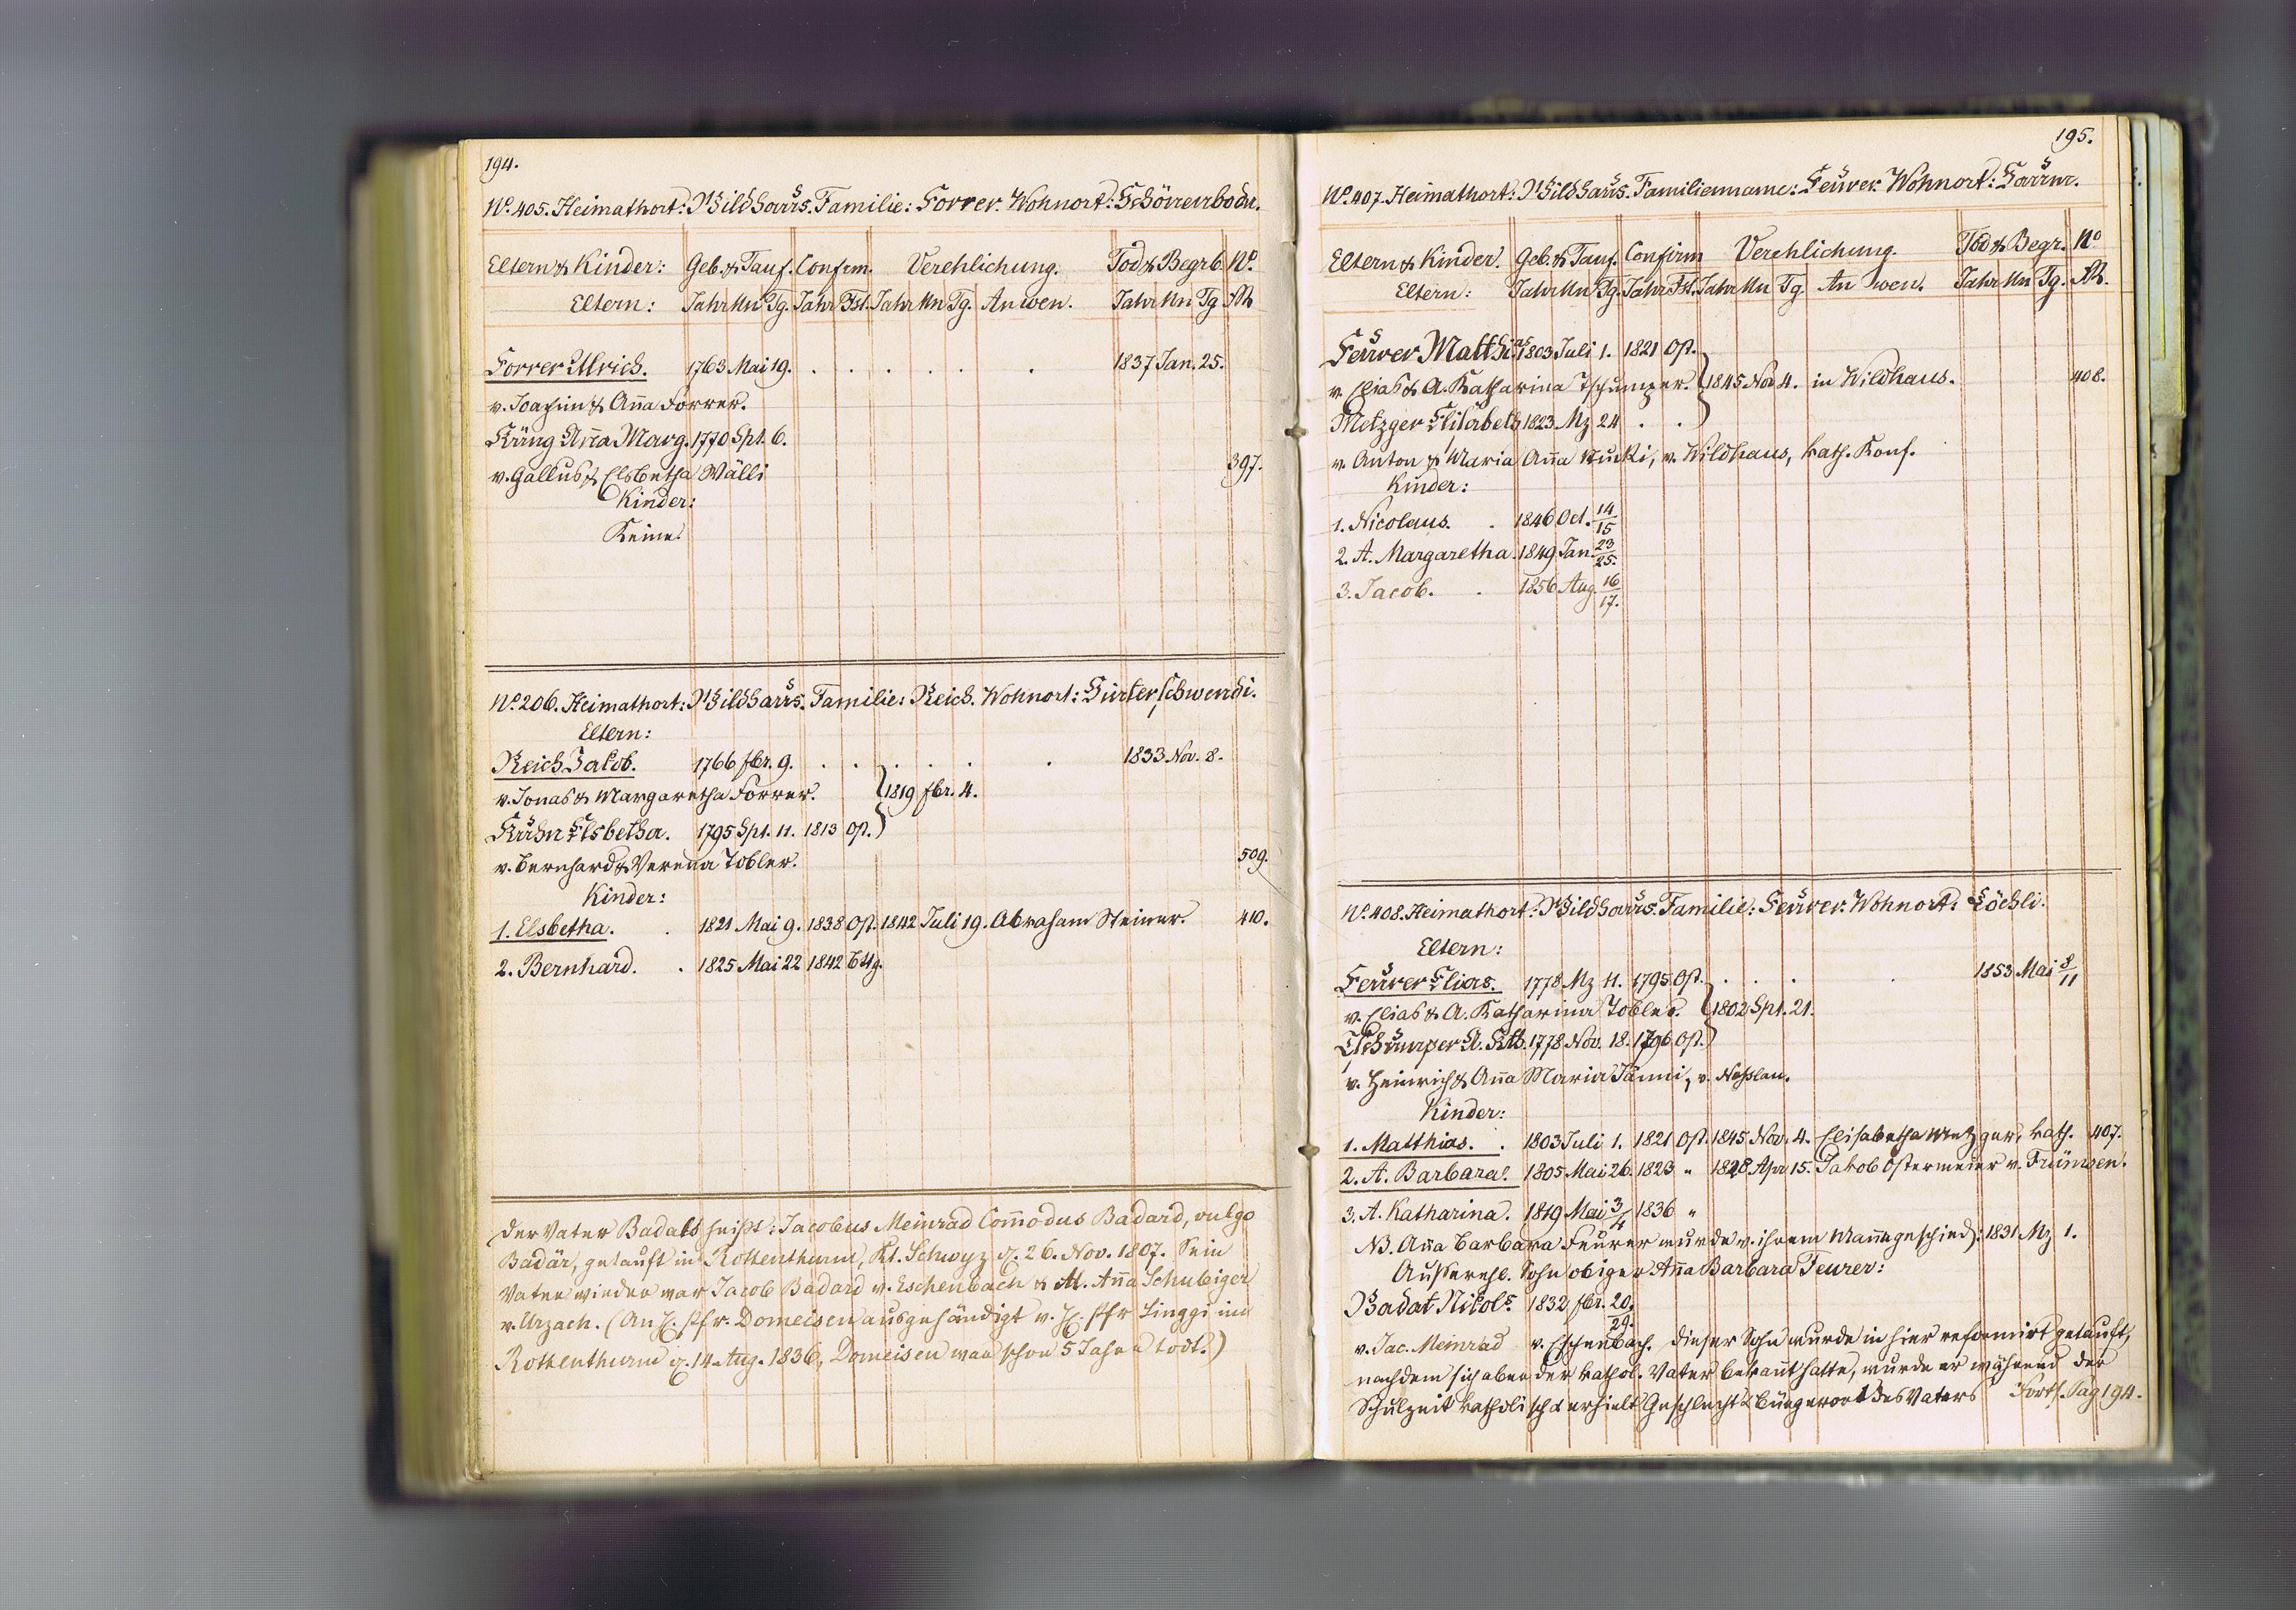 194.
No. 405. Heimathort: Wildhaus. Familie: Forrer. Wohnort: Schönenboden.
Eltern & Kinder: Geb. & Tauf. Confirm. Verehlichung. Tod & Begrb. No.
Eltern: Jahr Mn Tg. Jahr Fst. Jahr Mn Tg. An wen. Jahr Mn Tg
Forrer Ulrich. 1763 Mai 19. . . . . . . 1837 Jan. 25.
v. Joachim & Aña Forrer.
Küng Aña Marg. 1770 Spt. 6.
v. Gallus & Elsbetha Wälli 397.
Kinder:
Keine.
No. 206. Heimathort: Wildhaus. Familie: Reich. Wohnort: Hinterschwendi.
Eltern:
Reich Jakob. 1766 fbr. 9. . . . . . . 1833 Nov. 8.
v. Jonas & Margaretha Forrer. 1819 fbr. 4.
Kuhn Elsbetha. 1795 Spt. 11. 1813 Ost.
v. Bernhard & Verena Tobler. 509.
Kinder:
1. Elsbetha. . 1821 Mai 9. 1838 Ost. 1842 Juli 19. Abraham Steiner. 410.
2. Bernhard. . 1825 Mai 22 1842 Bttg.
Der Vater Badats heißt: Jacobus Meinrad Com̄odus Badard, vulgo
Badär, getauft in Rothenthurm, Kt. Schwyz d. 26. Nov. 1807. Sein
Vater wieder war Jacob Badard v. Eschenbach & M. Aña Schubiger
v. Uznach. (An H. Pfr. Domeisen ausgehändigt v. H. Pfr Linggi in
Rothenthurm d. 14. Aug. 1836, Domeisen war schon 5 Jahre todt.)
195.
No. 407. Heimathort: Wildhaus. Familienname: Feurer. Wohnort:
Eltern & Kinder. Geb. & Tauf. Confirm Verehlichung. Tod & Begr. No
Eltern: Jahr Mn Tg. Jahr Fst. Jahr Mn Tg An wen. Jahr Mn Tg.
Feurer Matthias 1803 Juli 1. 1821 Ost.
v. Elias & A. Katharina Tschumper. 1845 Nov 4. in Wildhaus. 408.
Metzger Elisabeth 1823 Mz 24 . .
v. Anton & Maria Aña Nucki, v. Wildhaus, kath. Konf.
Kinder:
1. Nicolaus. . 1846 Oct. 14/15
2. A. Margaretha. 1849 Jan. 23/25.
3. Jacob. . 1856 Aug. 16/17.
No. 408. Heimathort: Wildhaus. Familie: Feurer. Wohnort: Löchli.
Eltern:
Feurer Elias. 1778 Mz 11. 1795 Ost. . . . . 1853 Mai 8/11
v. Elias & A. Katharina Tobler. 1802 Spt. 21.
Tschumper A. Kth. 1778 Nov. 18. 1796 Ost.
v. Heinrich & Aña Maria Jäñi, v. Neßlau.
Kinder:
1. Matthias. . 1803 Juli 1. 1821 Ost. 1845 Nov. 4. Elisabetha Metzger, kath. 407.
2. A. Barbara. 1805 Mai 26. 1823 " 1828 Apr 15. Jakob Ostermeier v. Frümsen.
3. A. Katharina. 1819 Mai 3/4 1836 "
NB. Aña Barbara Feurer wurde v. ihrem Mañe geschied: 1831 Mz 1.
Außerehl. Sohn obiger Aña Barbara Feurer:
Badat Nikols. 1832 fbr. 20/29.
v. Jac. Meinrad v. Eschenbach. Dieser Sohn wurde in hier reformirt getauft,
nachdem sich aber der kathol. Vater bekañt hatte, wurde er während der
Schulzeit katholisch & erhielt Geschlecht & Bürgerort des Vaters Forts. Pag 194.